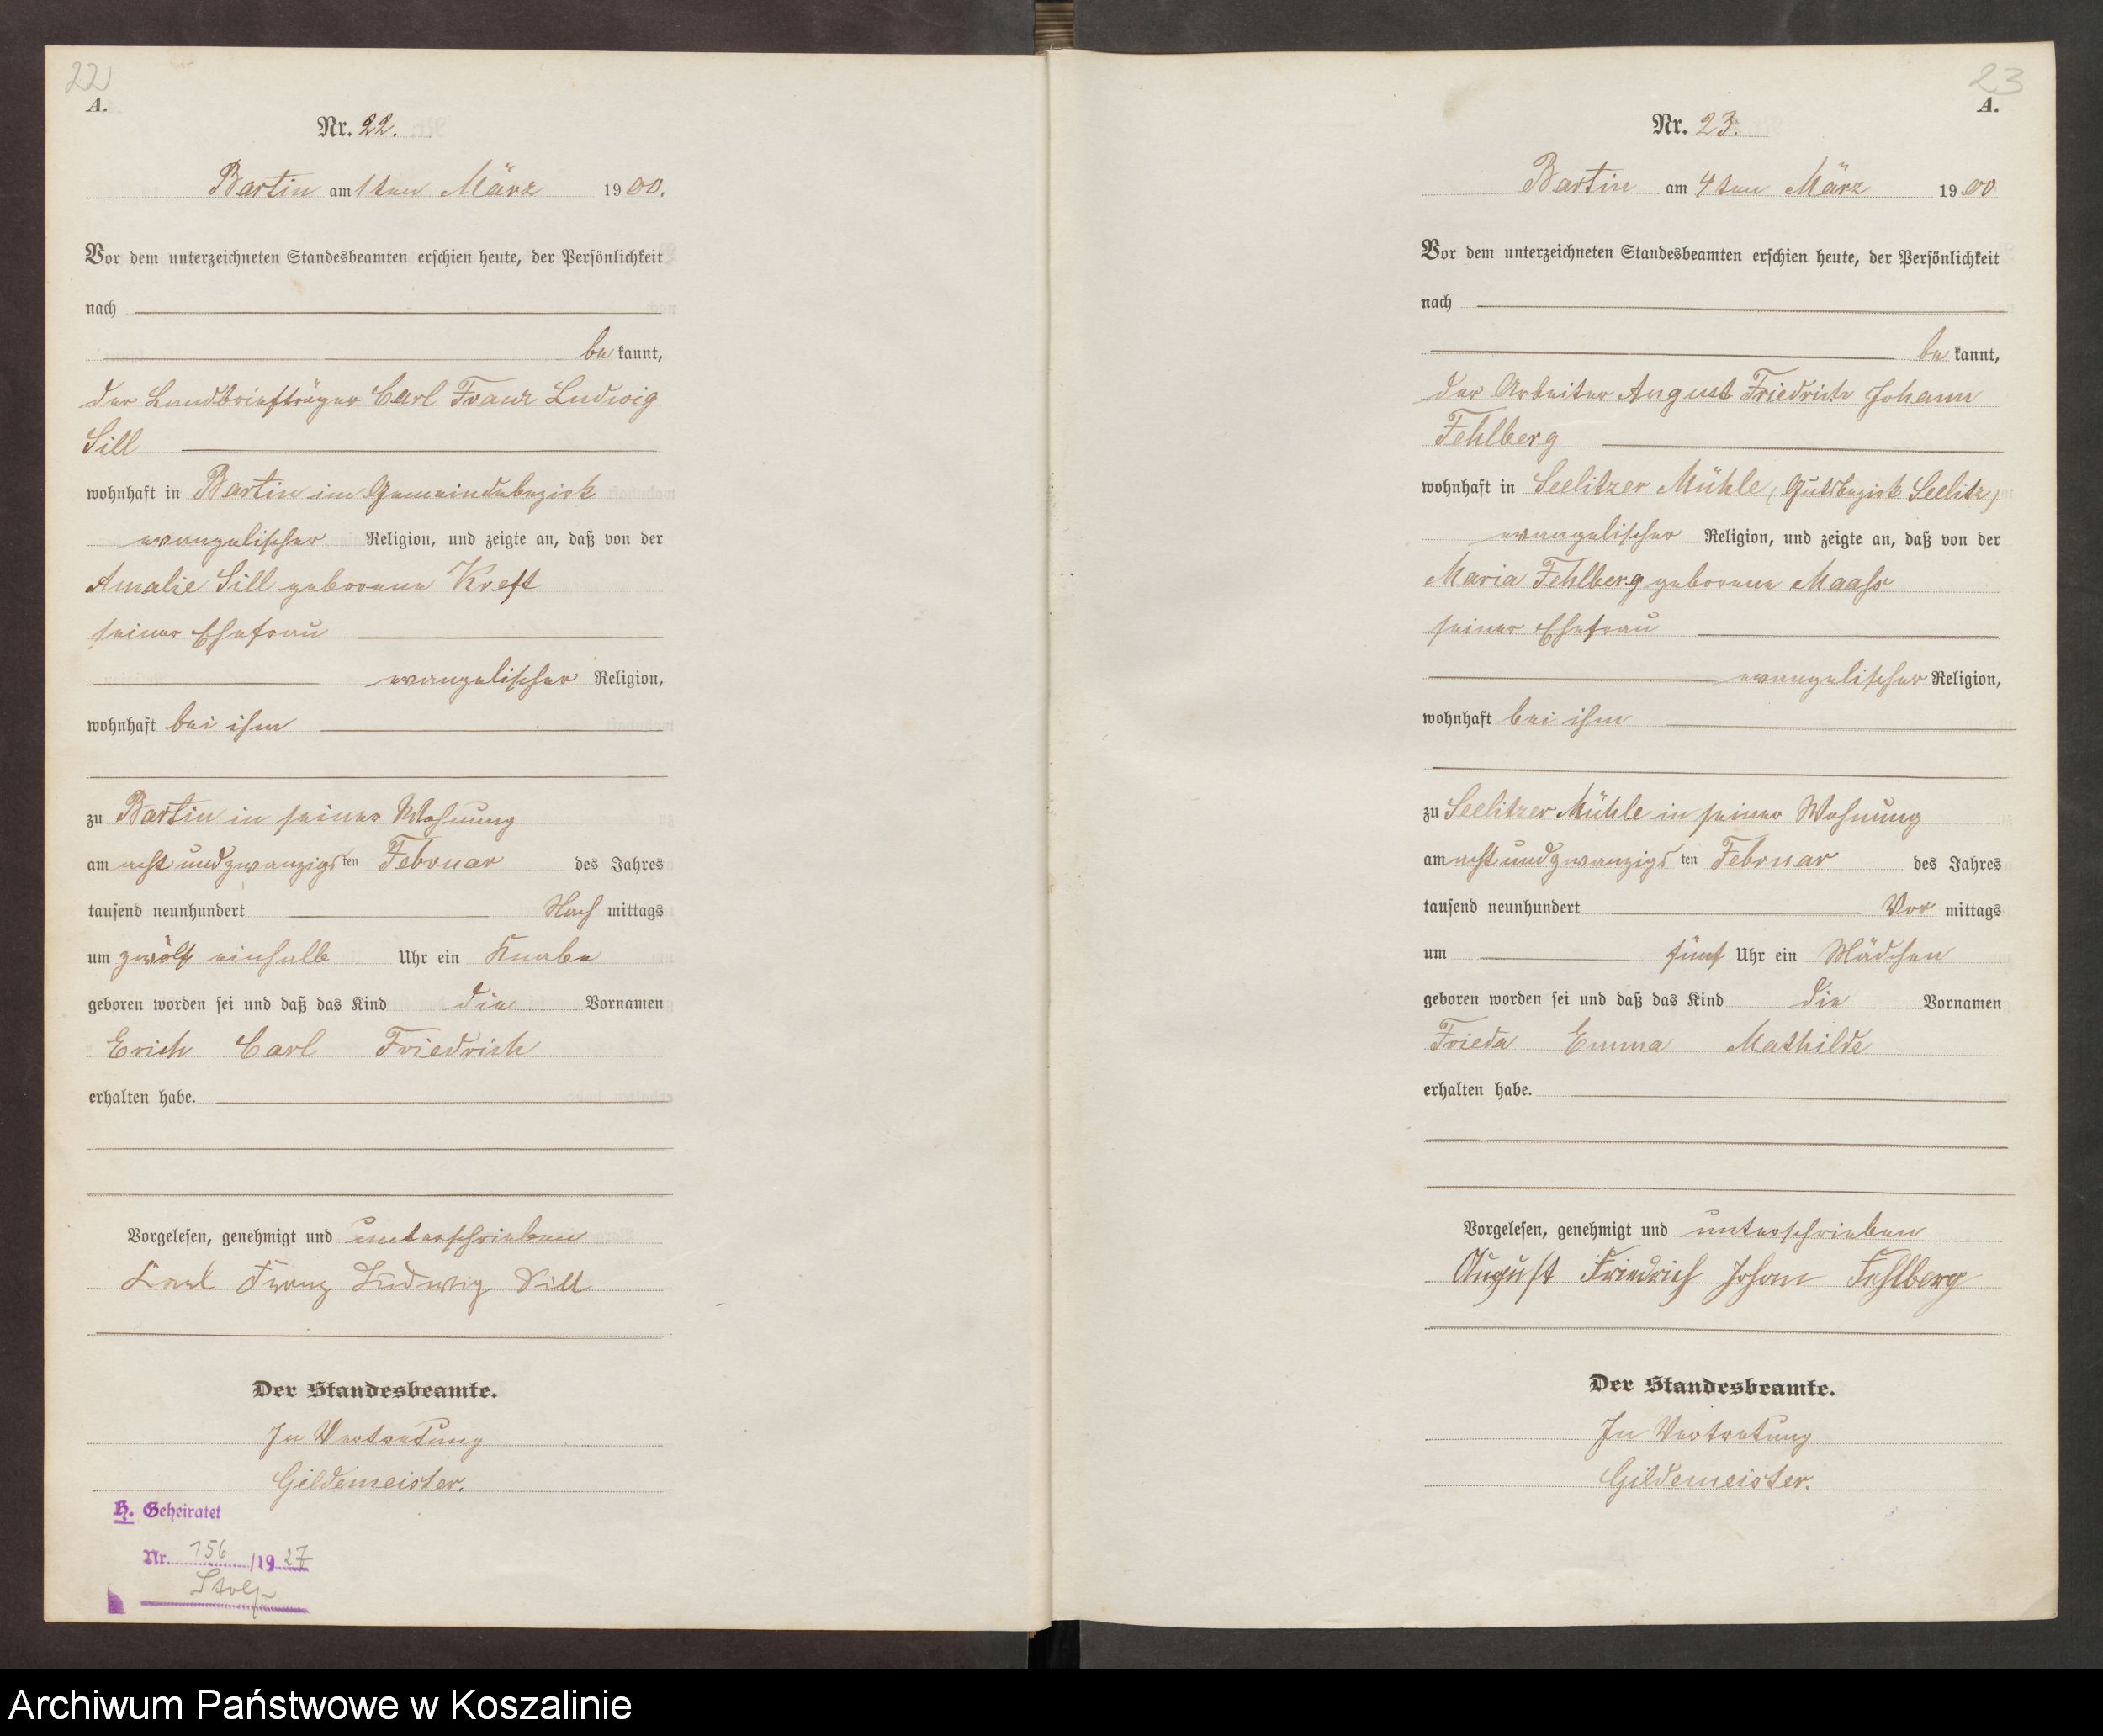 22
A.
Nr. 22.
Bartin am 1ten März 1900.
Vor dem unterzeichneten Standesbeamten erschien heute, der Persönlichkeit
nach
bekannt,
der Landbriefträger Carl Franz Ludwig
Sill
wohnhaft in Bartin im Gemeindebezirk
evangelischer Religion, und zeigte an, daß von der
Amalie Sill geborene Kreft
seiner Ehefrau
evangelischer Religion,
wohnhaft bei ihm
zu Bartin in seiner Wohnung
am acht und zwanzigsten Februar des Jahres
tausend neunhundert Nachmittags
um zwölf einhalb Uhr ein Knabe
geboren worden sei und daß das Kind die Vornamen
Erich Carl Friedrich
erhalten habe.
Vorgelesen, genehmigt und unterschrieben
Karl Franz Ludwig Sill
Der Standesbeamte.
In Vertretung
Gildemeister.
H. Geheiratet
Nr. 156/1927
Stolp
23
A.
Nr. 23.
Bartin am 4ten März 1900
Vor dem unterzeichneten Standesbeamten erschien heute, der Persönlichkeit
nach
bekannt,
der Arbeiter August Friedrich Johann
Fehlberg
wohnhaft in Seelitzer Mühle, (Gutsbezirk Seelitz)
evangelischer Religion, und zeigte an, daß von der
Maria Fehlberg geborene Maaß
seiner Ehefrau
evangelischer Religion,
wohnhaft bei ihm
zu Seelitzer Mühle in seiner Wohnung
am acht und zwanzigsten Februar des Jahres
tausend neunhundert Vormittags
um fünf Uhr ein Mädchen
geboren worden sei und daß das Kind die Vornamen
Frieda Emma Mathilde
erhalten habe.
Vorgelesen, genehmigt und unterschrieben
August Friedrich Johan Fehlberg
Der Standesbeamte.
In Vertretung
Gildemeister.
Archiwum Państwowe w Koszalinie